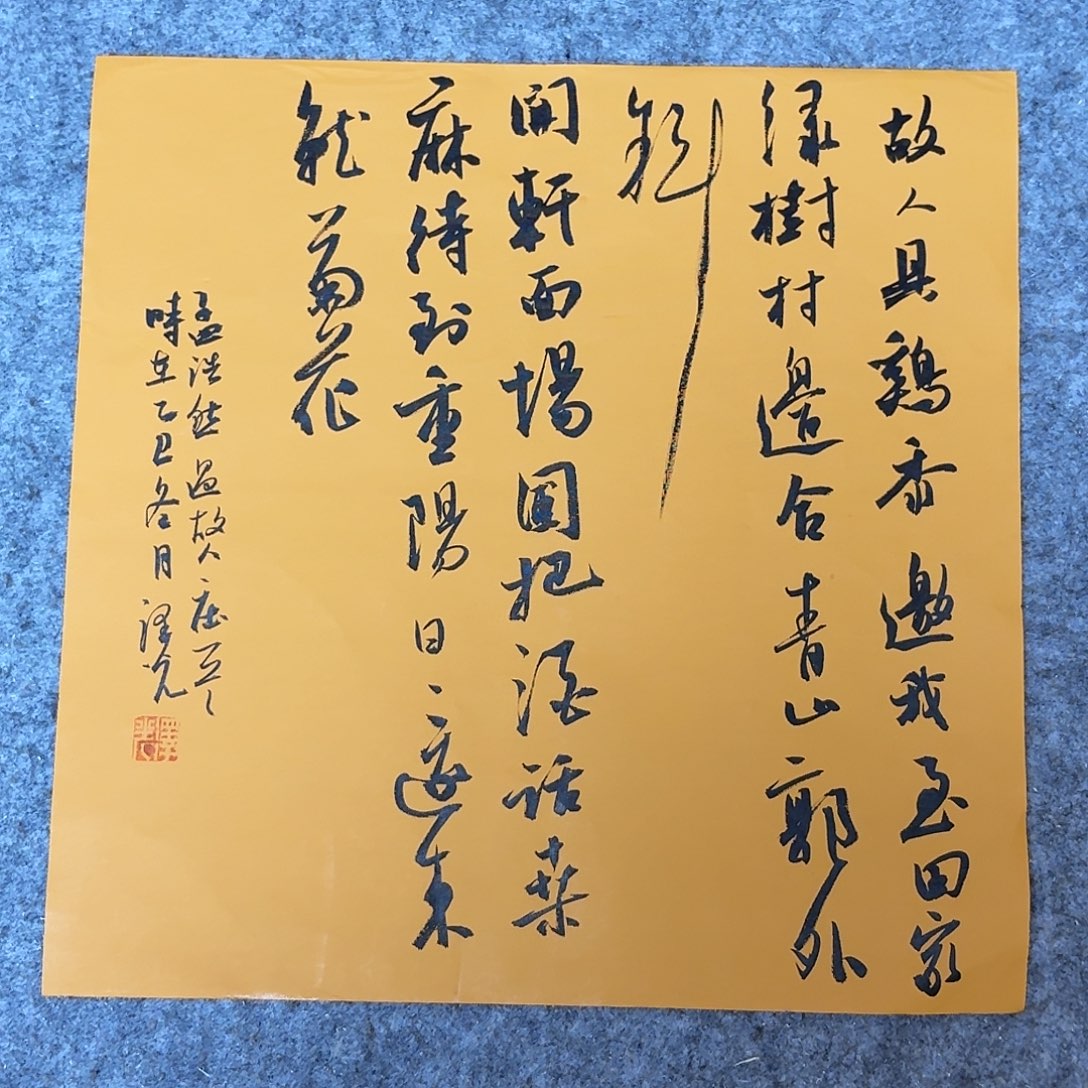 故人具鷄黍邀我至田家
緑樹村邊合青山郭外
斜
開軒面場圃把酒話桑
麻待到重陽日還來
就菊花
孟浩然過故人庄
時在乙巳冬月